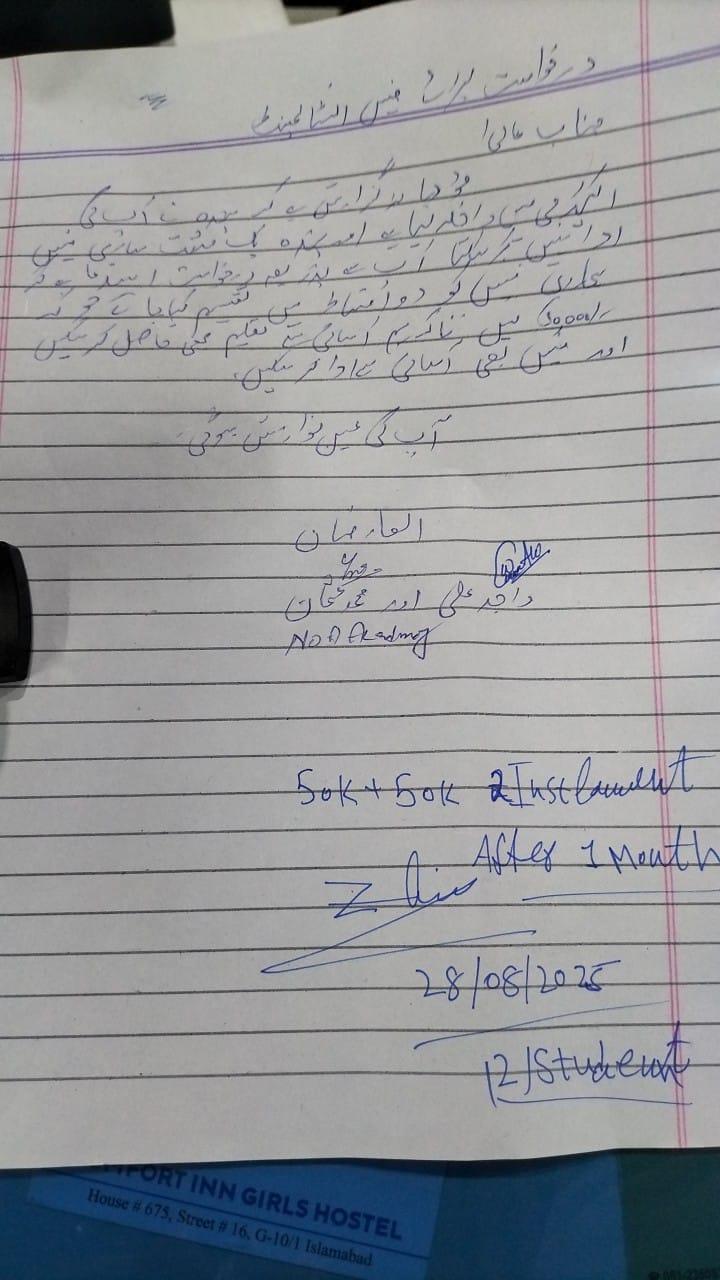 درخواست برائے فیس انسٹالمینٹ
جناب عالی!
گزارش ہے کہ بندہ نے آپ کی
اکیڈمی میں داخلہ لیا ہے اور بندہ یک مشت ساری فیس
ادا نہیں کر سکتا آپ سے بذریعہ درخواست استدعا ہے کہ
ہماری فیس کو دو اقساط میں تقسیم کیا جائے جو کہ
50,000/- ہیں تاکہ ہم آسانی سے تعلیم بھی حاصل کر سکیں
اور فیس بھی آسانی سے ادا کر سکیں۔
آپ کی عین نوازش ہوگی۔
العارضان
واجد علی اور محمد عثمان
NOA Akadmy
50K + 50K 2 Instlament
After 1 Month
28/08/2025
(2) Student
FORT INN GIRLS HOSTEL
House # 675, Street # 16, G-10/1 Islamabad